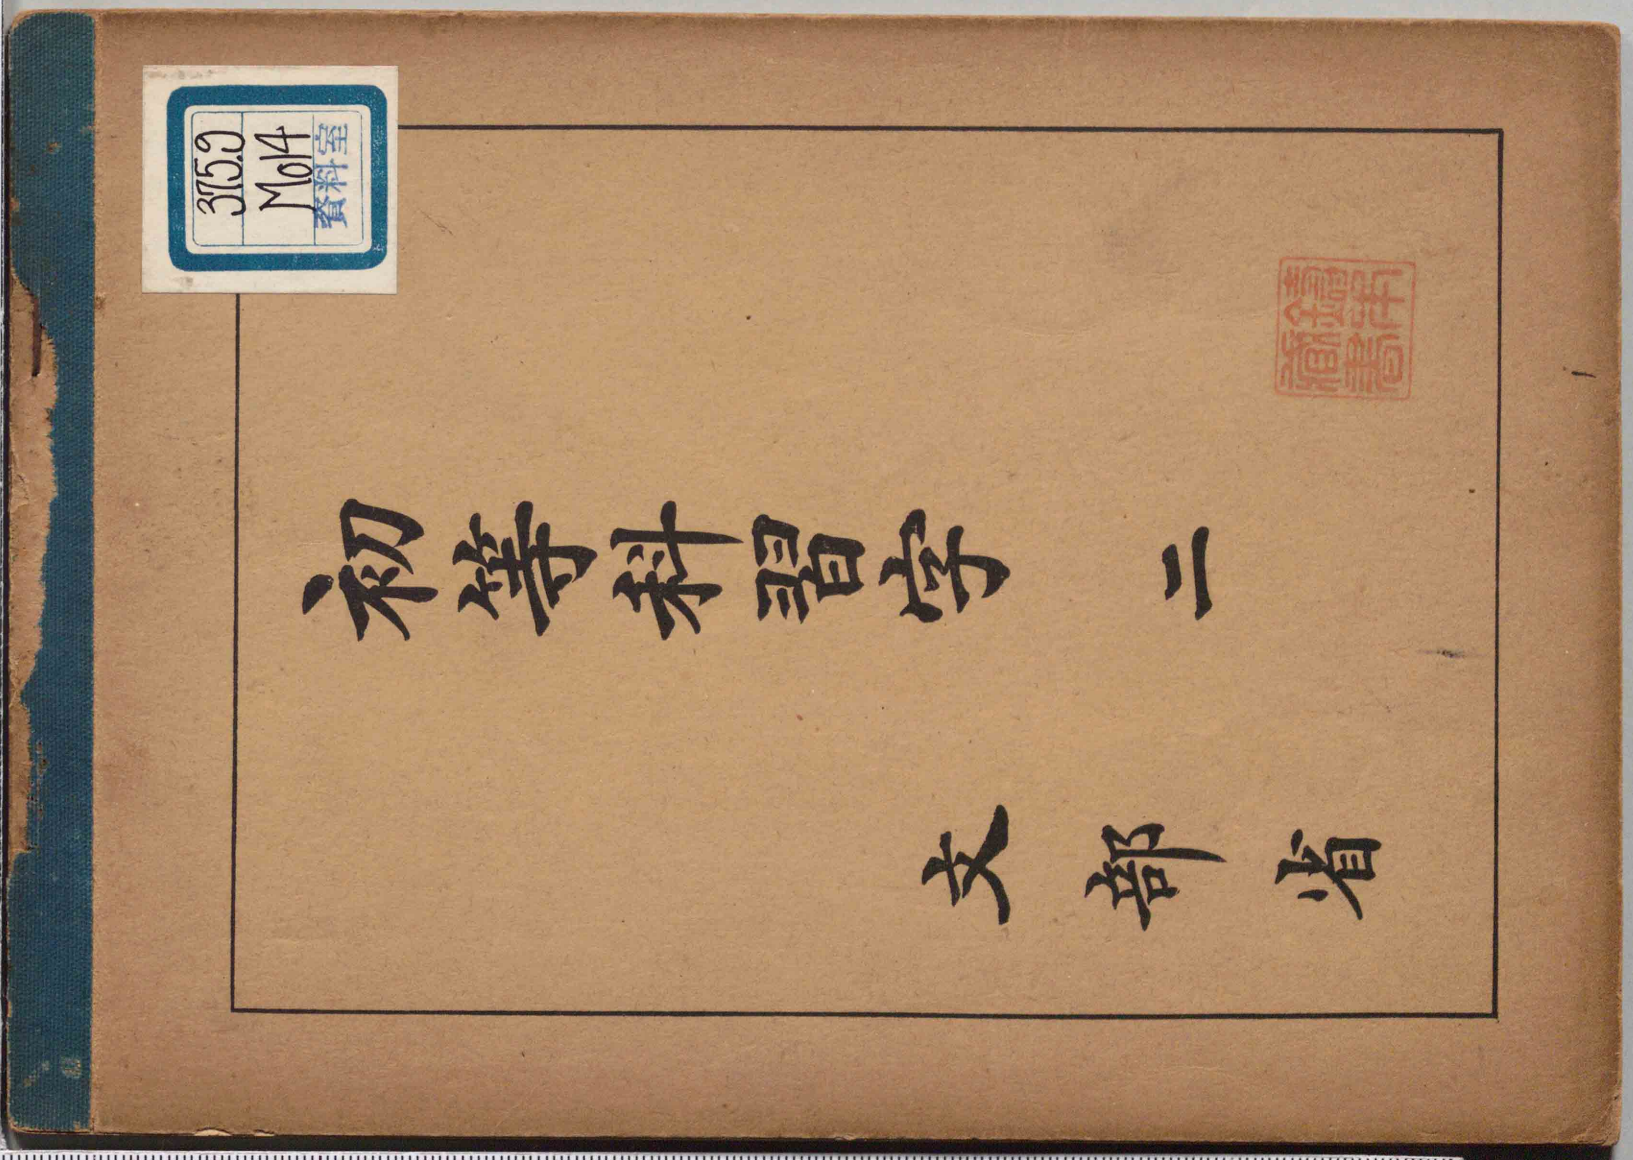 375.9
Mo14
資料室
初等科習字 二
文部省